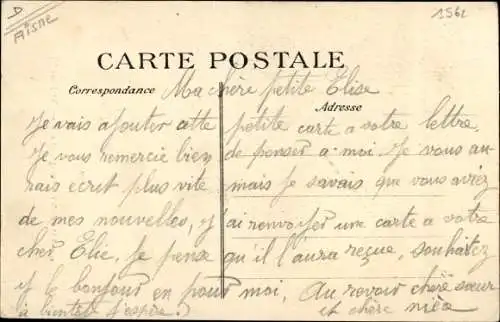 D
Aisne
1562
CARTE POSTALE
Correspondance
Adresse
Ma chère petite Elise
Je vais ajouter cette petite carte a votre lettre,
Je vous remercie bien de penser a moi Je vous au-
rais ecrit plus vite mais Je savais que vous aviez
de mes nouvelles, J'ai renvoyer une carte a votre
cher, Elie, Je pense qu'il l'aura reçue, souhaitez
y le bonjour en pour moi, Au revoir chère sœur
à bientôt J'espère. et chère